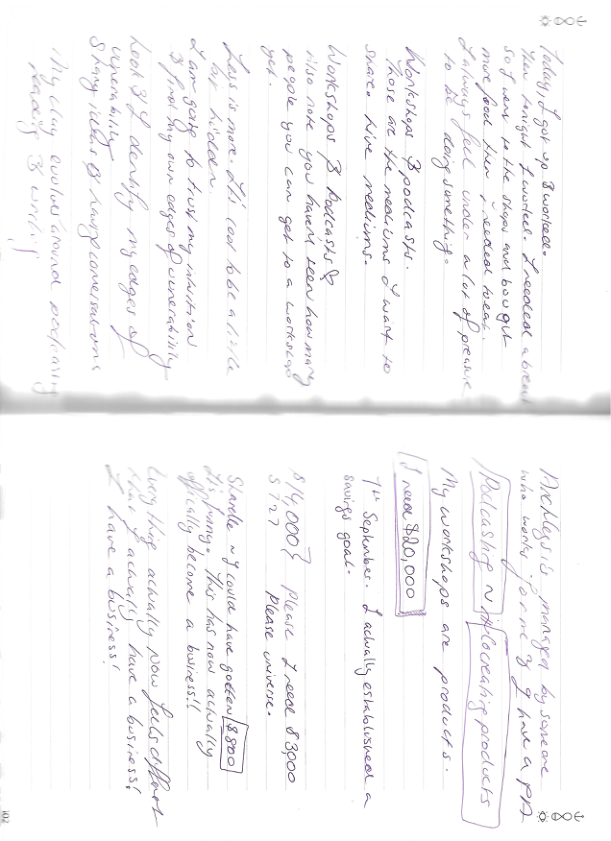 Today I got up & worked.
then tonight I worked. I needed a break
so I went to the shops and bought
more food then I needed to eat.
I always feel under a lot of pressure
to be doing something.
Workshops & podcasts.
those are the mediums I want to
share. Live mediums.
Workshops & Podcasts
Also note you haven't seen how many
people you can get to a workshop
yet.
Less is more. It's cool to be a little
bit hidden.
I am going to trust my intuition
& find my own edges of vulnerability
Look & I identify my edges of
vulnerability
Sharing ideas & having conversations
My day evolves around
reading & writing
is managed by someone
who works for me & I have a PA
Podcasting ~ creating products
My workshops are products.
I need $20,000
7th September. I actually established a
savings goal.
$14,000} Please I need $3,000
$727 Please universe.
~ could have gotten $800
It's funny. This has now actually
officially become a business!!
Everything actually now feels different
I actually have a business!
I have a business!
102